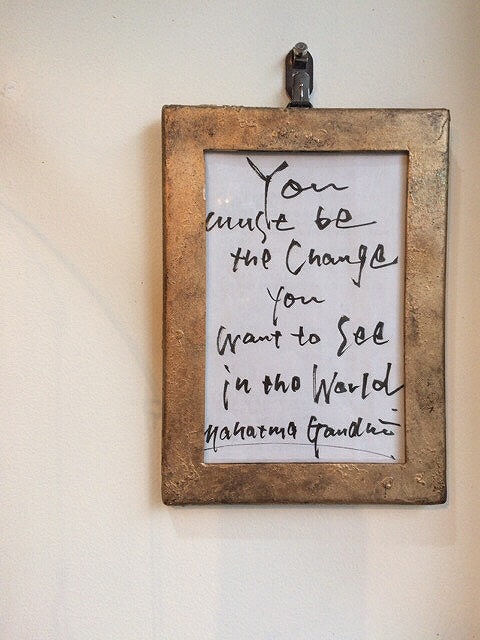 You
must be
the Change
you
want to See
in the World
Mahatma Gandhi